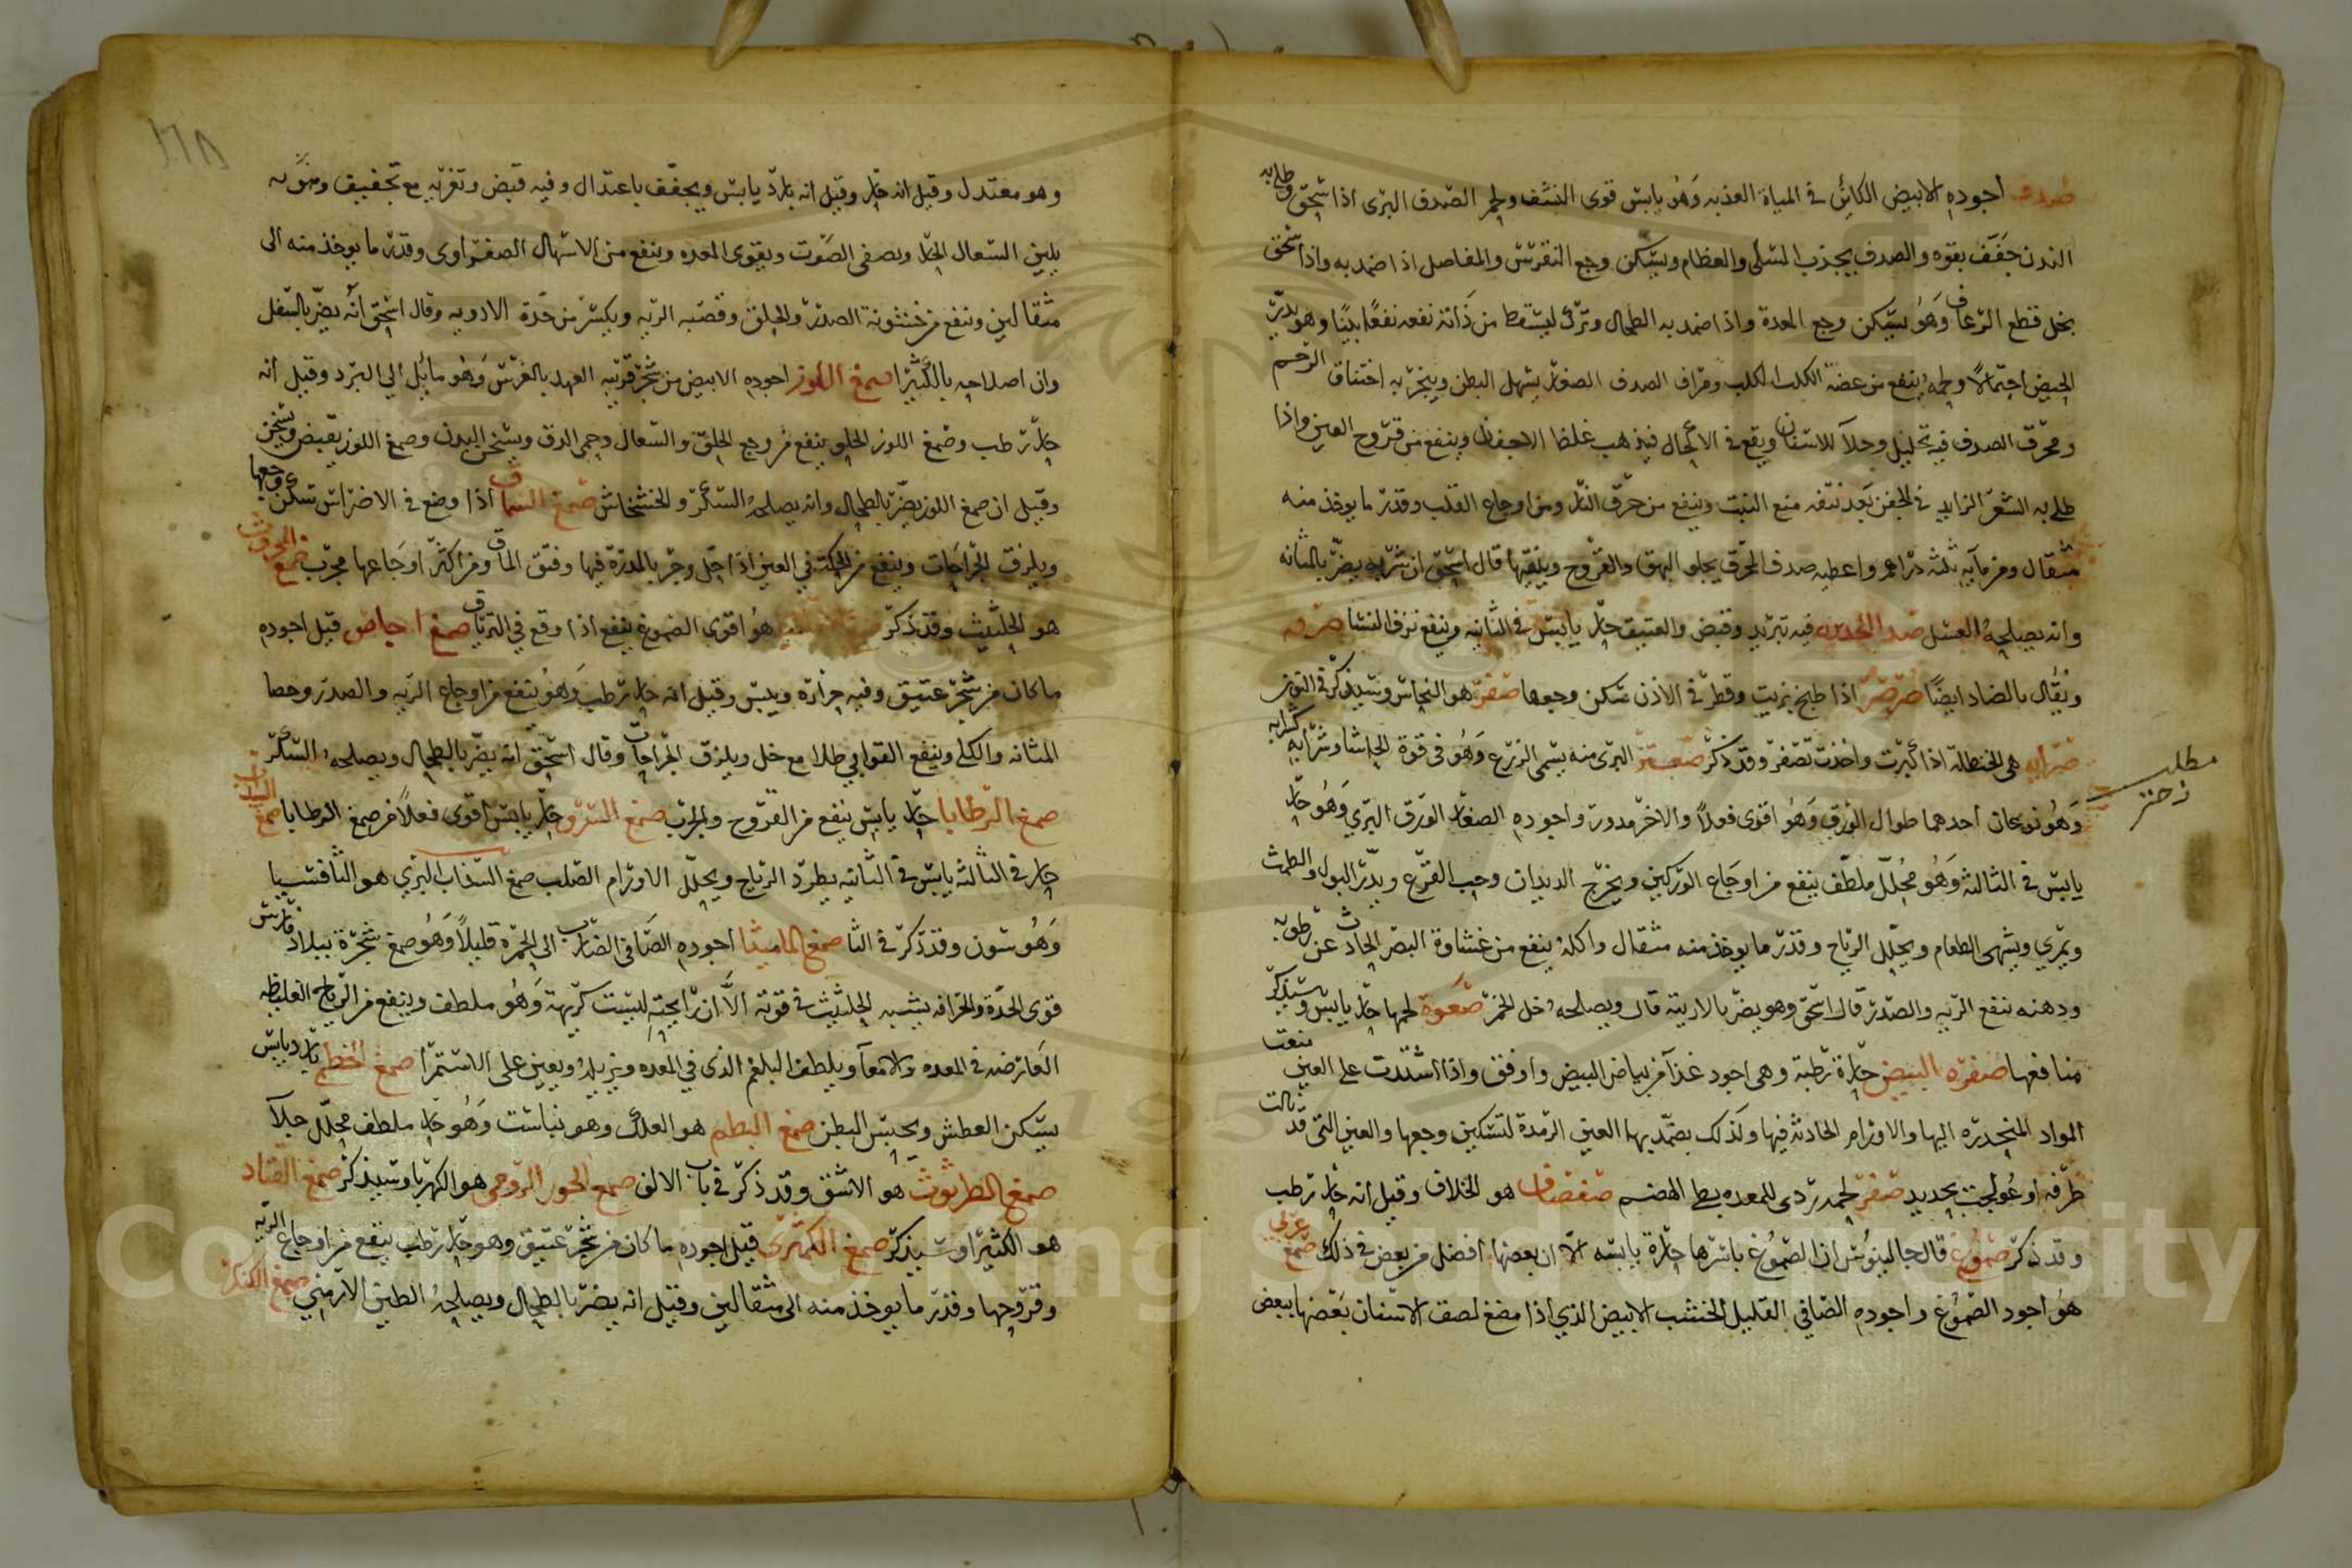 صدف اجوده الابيض الكاين في المياة العذبه وهو يابس قوى النشف ولحم الصدف البرى اذا سحق وطلى به
البدن جفف بقوه والصدف يجذب السلى والعظام ويسكن وجع النقرس والمفاصل اذا ضمد به واذا سحق
بخل قطع الرعاف وهو يسكن وجع المعدة واذا ضمد به الطحال وترك ليسقط من ذاته نفعه نفعًا بينًا وهو يدر
الحيض احتمالاً ولحمه ينفع من عضة الكلب الكلب ومراق الصدف الصغار يسهل البطن ويبخر به اختناق الرحم
ومحرق الصدف فيه تحليل وجلآ للاسنان ويقع في الاكحال فيذهب غلظ الاجفان وينفع من قروح العين واذا
طلى به الشعر الزايد في الجفن بعد نتفه منع النبت وينفع من حرق النار ومن اوجاع القلب وقدر ما يوخذ منه
مثقال ومن مآيه ثلثه دراهم واعطيه صدف المحرق يجلو البهق والقروح وينقيها قال اسحق ان شرابه يضر بالمثانه
وانه يصلحه العسل صدا الحديد فيه تبريد وقبض والعتيق حار يابس في الثانيه وينفع نزف النسا صرفه
ويقال بالضاد ايضًا صرصر اذا طبخ بزيت وقطر في الاذن سكن وجعها صفر هو النحاس وسيذكر في النون
صرايه هى الحنظلة اذا كبرت واخذت تصفر وقد ذكر صعتر البرى منه يسمى الزرع وهو في قوة الحاشا وشرابه كشرابه
وهو نوعان احدهما طوال الورق وهو اقوى فعلاً والاخر مدور واجوده الصغار الورق البري وهو حار
يابس في الثالثة وهو محلل ملطف ينفع من اوجاع الوركين ويخرج الديدان وحب القرع ويدر البول والطمث
ويمري ويشهى الطعام ويحلل الرياح وقدر ما يوخذ منه مثقال واكله ينفع من غشاوة البصر الحادث عن رطوبه
ودهنه ينفع الريه والصدر قال اسحق وهو يضر بالاريته قال ويصلحه خل الخمر صعوة لحمها حار يابس وسيذكر
منافعها صفره البيض حارة رطبة وهى اجود غذآ من بياض البيض واوفق واذا اشتدت على العين منعت
المواد المنحدره اليها والاورام الحادثه فيها ولذلك يضمد بها العين الرمدة لتسكين وجعها والعين التى قد نالت
طرفه او عولجت بحديد صقر لحمه ردى للمعده بطى الهضم صفصاف هو الخلاف وقيل انه حار رطب
وقد ذكر صموغ قال جالينوس ان الصموغ باسرها حارة يابسه الا ان بعضها افضل من بعض في ذلك صمغ عربي
هو اجود الصموغ واجوده الصافي القليل الخشب الابيض الذي اذا مضغ لصق الاسنان بعضها ببعض
مطلب زعتر
١٦٨
وهو معتدل وقيل انه حار وقيل انه بارد يابس ويجفف باعتدال وفيه قبض وتغريه مع تجفيف وهو
يلين السعال الحار ويصفى الصوت ويقوى المعده وينفع من الاسهال الصفراوى وقدر ما يوخذ منه الى
مثقالين وينفع من خشونة الصدر والحلق وقصبه الريه ويكسر من حدة الادويه وقال اسحق انه يضر بالسفل
وان اصلاحه بالكثيرا صمغ اللوز اجوده الابيض من شجر قريبه العهد بالغرس وهو مايل الى البرد وقيل انه
حار رطب وصمغ اللوز الحلو ينفع من وجع الحلق والسعال وحمى الدق ويسخن البدن وصمغ اللوز يقبض ويسخن
وقيل ان صمغ اللوز يضر بالطحال وانه يصلحه السكر والخشخاش صمغ السماق اذا وضع في الاضراس سكن وجعها
ويلزق الجراحات وينفع من الحكة في العين اذا حل وجر بالمدرة فيها وفتق الماق ومن اكثر اوجاعها مجرب صمغ المحروث
هو الحلتيث وقد ذكر هو اقوى الصموغ ينفع اذا وقع في الترياق صمغ اجاص قيل اجوده
ما كان من شجر عتيق وفيه حراره ويبس وقيل انه حار رطب وهو ينفع من اوجاع الريه والصدر وحصا
المثانه والكلى وينفع القوابي طلا مع خل ويلزق الجراحات وقال اسحق انه يضر بالطحال ويصلحه السكر
صمغ الرطايا حار يابس ينفع من القروح والجرب صمغ السرو حار يابس اقوى فعلاً من صمغ الرطايا صمغ السذاب
حار في الثالثه يابس في الثانيه يطرد الرياح ويحلل الاورام الصلب صمغ السذاب البري هو الثافسيا
وهو سون وقد ذكر في الثا صمغ الماميثا اجوده الصافى الضارب الى الحمره قليلاً وهو صمغ شجرة ببلاد فارس
قوى الحدة والحرافه يشبه الحلتيث في قوته الا ان رايحته ليست كريهة وهو ملطف وينفع من الرياح الغليظه
العارضه في المعده والامعآ ويلطف البلغم الذى في المعده ويزيله ويعين على الاستمرا صمغ الخطمى بارد يابس
يسكن العطش ويحبس البطن صمغ البطم هو العلك وهو نباست وهو حار ملطف محلل جلآ
صمغ الطرثوث هو الاشق وقد ذكر في باب الالف صمغ الحور الرومى هو الكهربا وسيذكر صمغ القتاد
هو الكثيرا وسيذكر صمغ الكمثرى قيل اجوده ما كان من شجر عتيق وهو حار رطب ينفع من اوجاع الريه
وقروحها وقدر ما يوخذ منه الى مثقالين وقيل انه يضر بالطحال ويصلحه الطين الارمني صمغ الكنكر
Copyright © King Saud University
1957